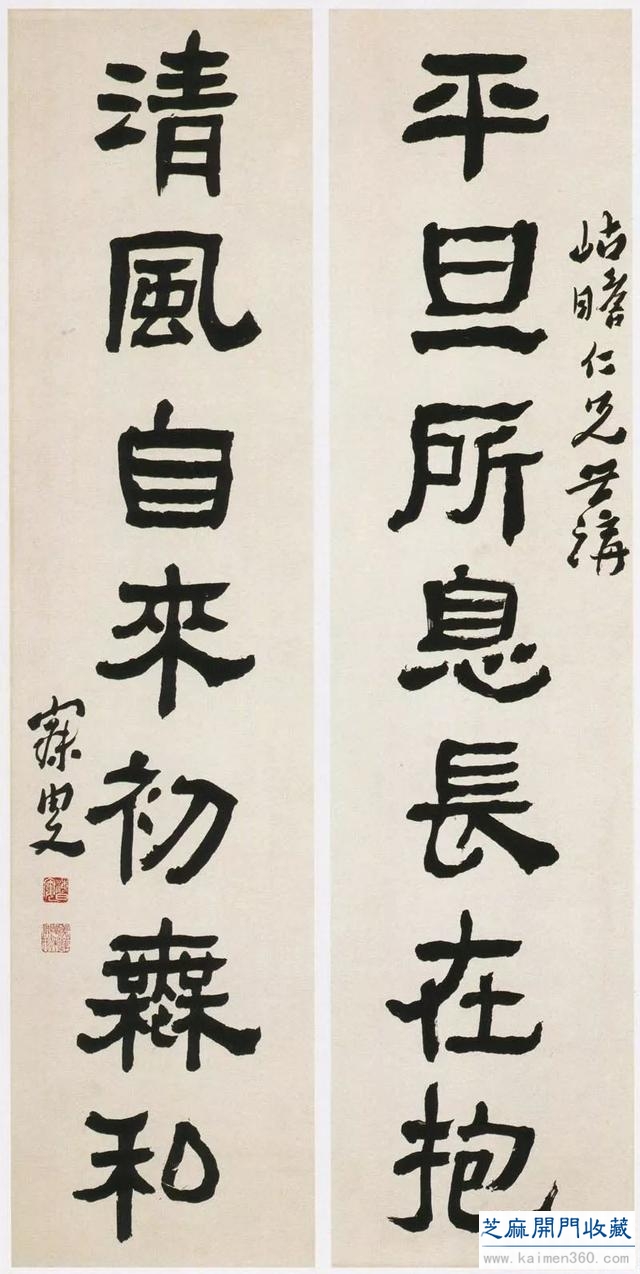 岵瞻仁兄世講
平旦所息長在抱
清風自來初橆私
寐叟
芝麻開門收藏
www.kaimen360.com